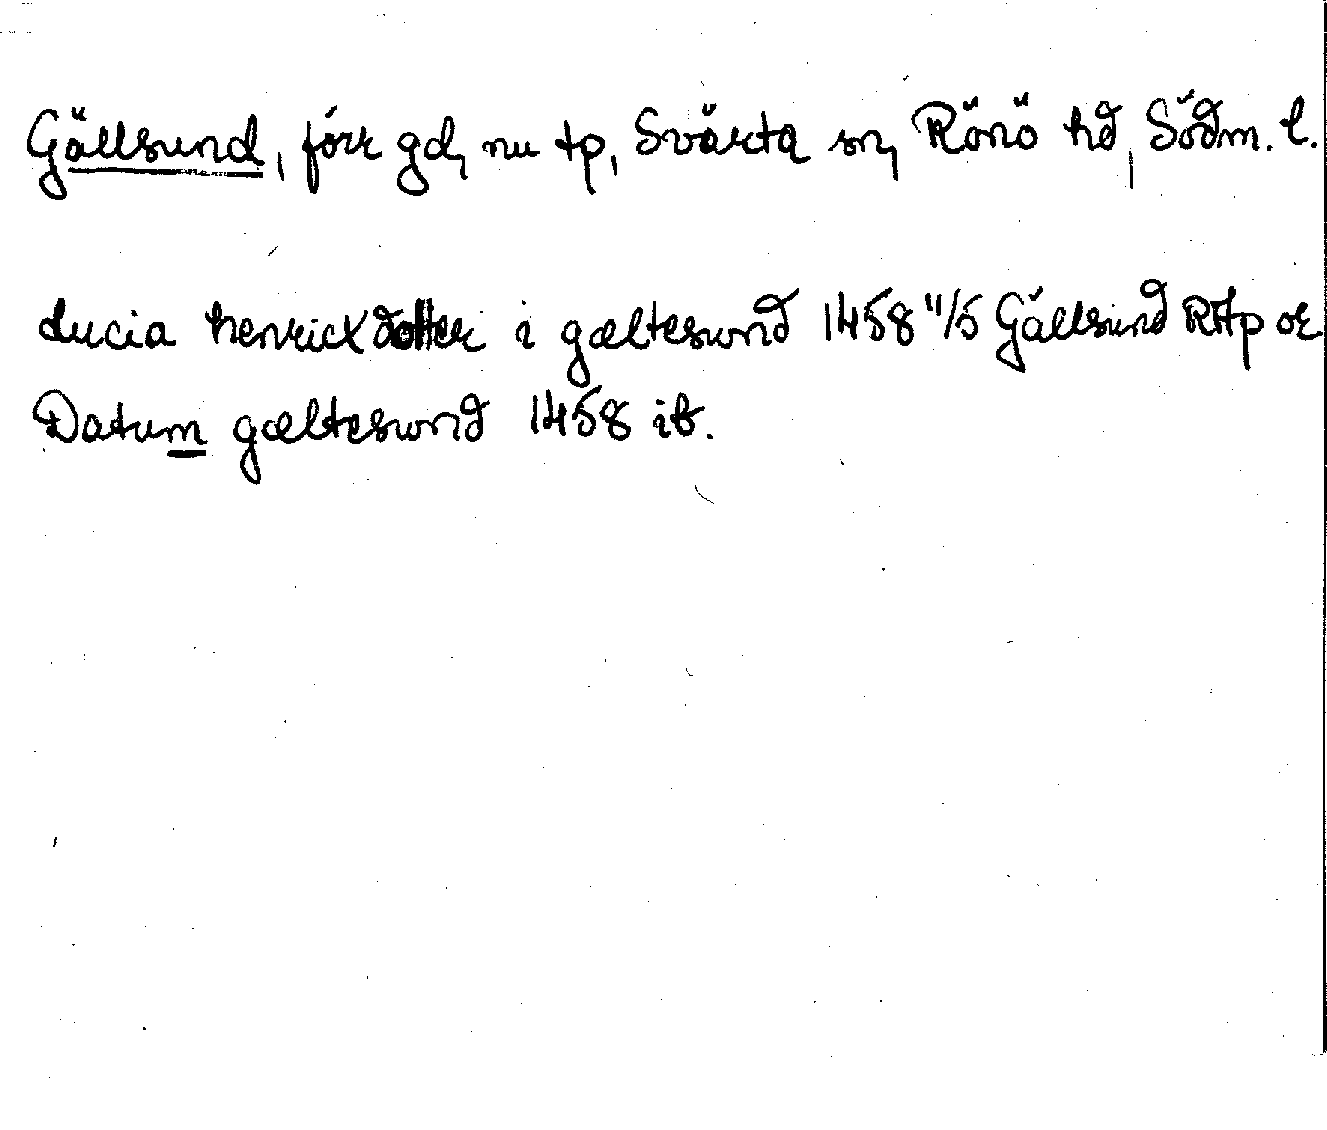 Gällsund, förr gd, nu tp, Svärta sn, Rönö hd, Södm. l.
Lucia henrickxdotter i gæltesund 1458 11/5 Gällsund RAp or
Datum gæltesund 1458 ib.